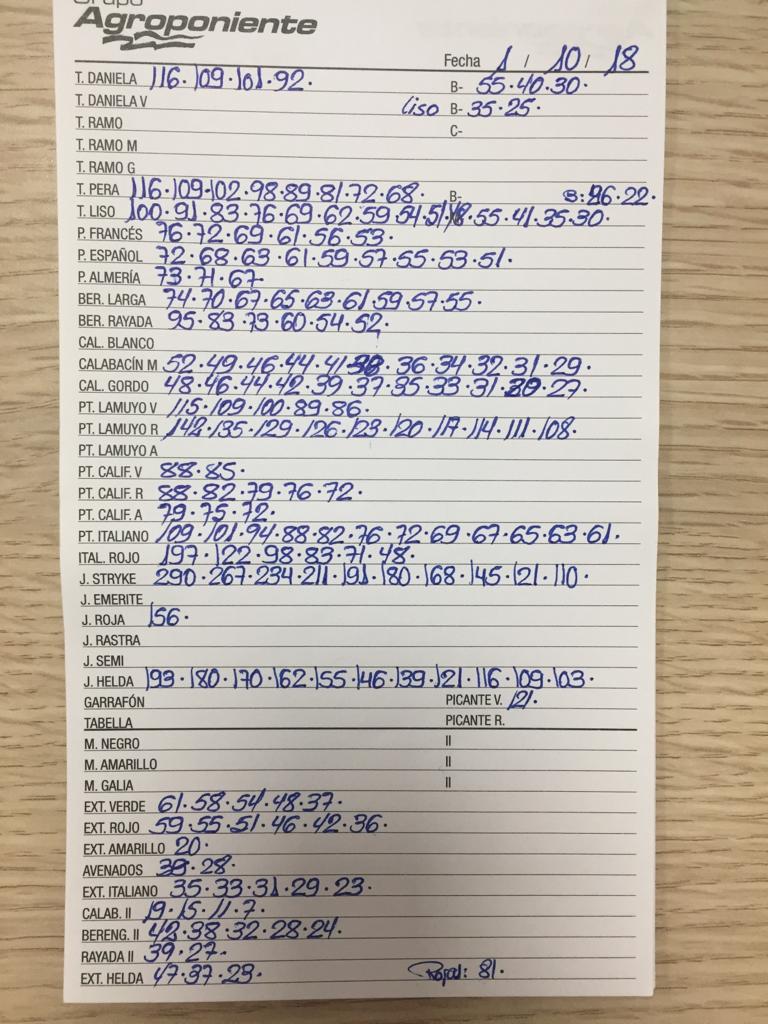 Grupo
Agroponiente
Fecha 1 / 10 / 18
T. DANIELA 116·109·101·92· B- 55·40·30·
T. DANIELA V liso B- 35·25·
T. RAMO C-
T. RAMO M
T. RAMO G
T. PERA 116·109·102·98·89·81·72·68· B- B: 26·22·
T. LISO 100·91·83·76·69·62·59·54·51·48·55·41·35·30·
P. FRANCÉS 76·72·69·61·56·53·
P. ESPAÑOL 72·68·63·61·59·57·55·53·51·
P. ALMERÍA 73·71·67·
BER. LARGA 74·70·67·65·63·61·59·57·55·
BER. RAYADA 95·83·73·60·54·52·
CAL. BLANCO
CALABACÍN M 52·49·46·44·41·38·36·34·32·31·29·
CAL. GORDO 48·46·44·42·39·37·35·33·31·29·27·
PT. LAMUYO V 115·109·100·89·86·
PT. LAMUYO R 142·135·129·126·123·120·117·114·111·108·
PT. LAMUYO A
PT. CALIF. V 88·85·
PT. CALIF. R 88·82·79·76·72·
PT. CALIF. A 79·75·72·
PT. ITALIANO 109·101·94·88·82·76·72·69·67·65·63·61·
ITAL. ROJO 197·122·98·83·71·48·
J. STRYKE 290·267·234·211·191·180·168·145·121·110·
J. EMERITE
J. ROJA 156·
J. RASTRA
J. SEMI
J. HELDA 193·180·170·162·155·146·139·121·116·109·103·
GARRAFÓN PICANTE V. 121·
TABELLA PICANTE R.
M. NEGRO II
M. AMARILLO II
M. GALIA II
EXT. VERDE 61·58·54·48·37·
EXT. ROJO 59·55·51·46·42·36·
EXT. AMARILLO 20·
AVENADOS 39·28·
EXT. ITALIANO 35·33·31·29·23·
CALAB. II 19·15·11·7·
BERENG. II 42·38·32·28·24·
RAYADA II 39·27·
EXT. HELDA 47·37·23· : 81·